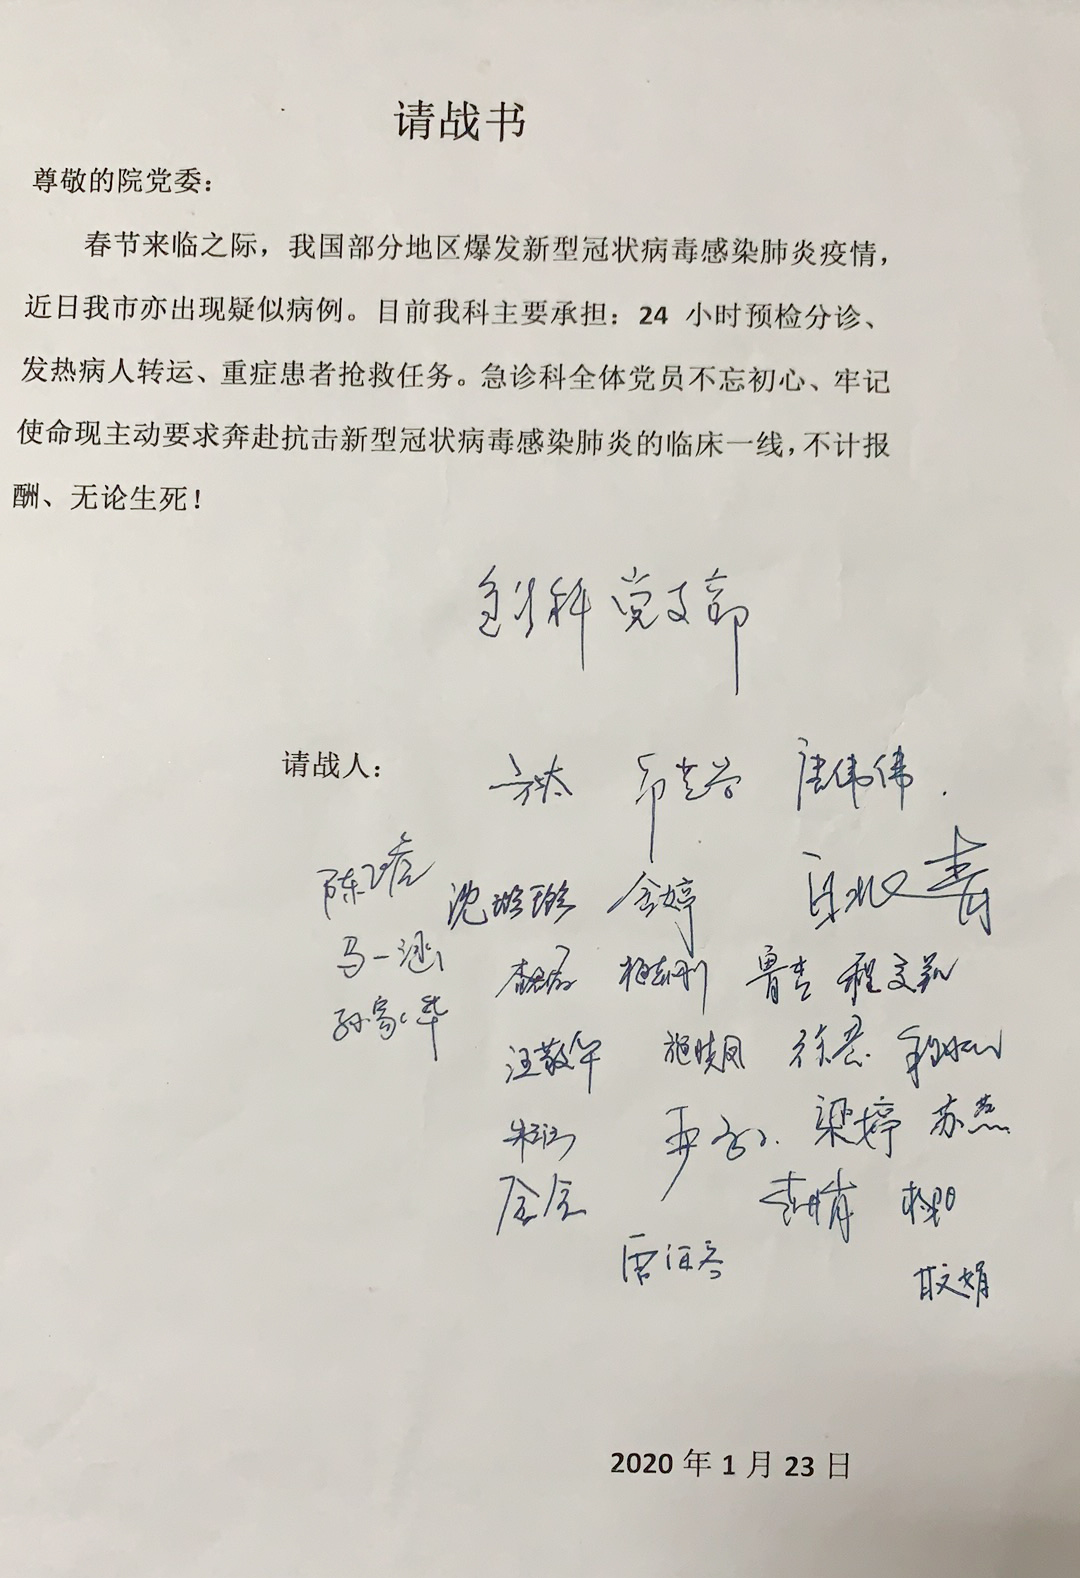 请战书
尊敬的院党委：
春节来临之际，我国部分地区爆发新型冠状病毒感染肺炎疫情，
近日我市亦出现疑似病例。目前我科主要承担：24 小时预检分诊、
发热病人转运、重症患者抢救任务。急诊科全体党员不忘初心、牢记
使命现主动要求奔赴抗击新型冠状病毒感染肺炎的临床一线，不计报
酬、无论生死！
急诊科 党支部
请战人：
唐伟伟
沈璐璐 金婷
马一涵
鲁青
孙家华
汪敬华 施晓凤 徐忍
梁婷 苏燕
2020 年 1 月 23 日